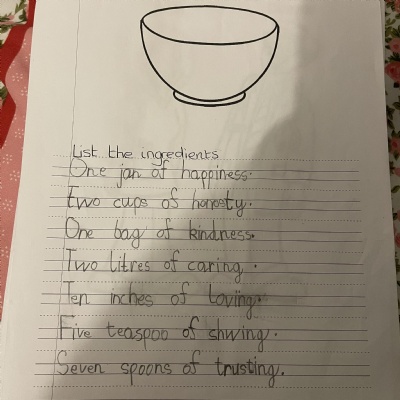 List the ingredients
One jar of happiness.
Two cups of honosty.
One bag of kindness.
Two litres of caring.
Ten inches of Loving.
Five teaspoo of shwing.
Seven spoons of trusting.